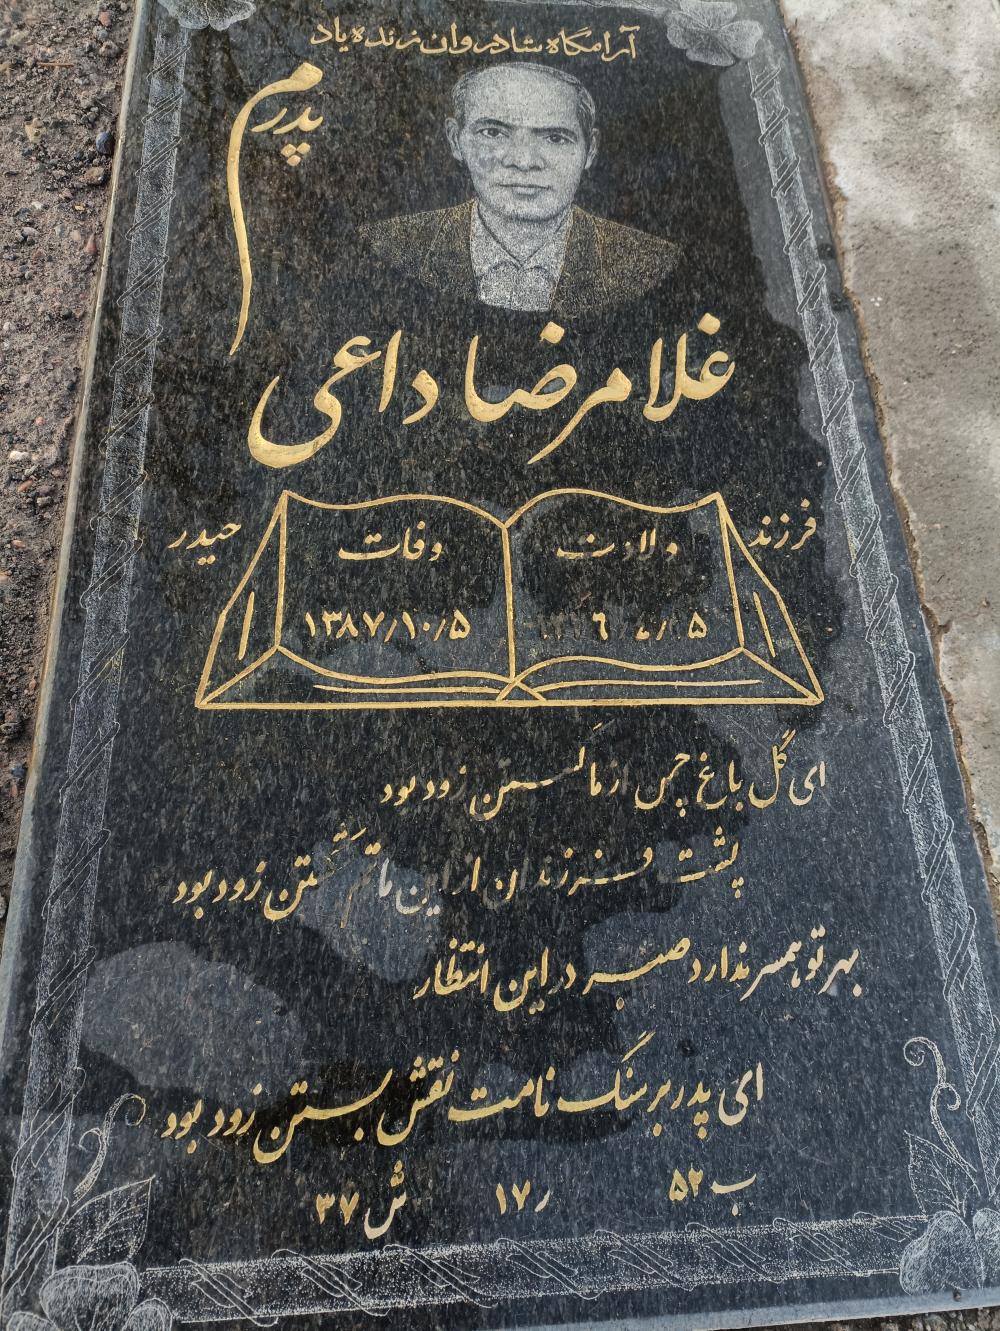 آرامگاه شادروان زنده یاد
پدرم
غلامرضا داعی
فرزند
حیدر
ولادت
وفات
۱۳۸۷/۱۰/۵
ای گل باغ چمن از ما گسستن زود بود
پشت فرزندان از این ماتم شکستن زود بود
بهر تو همسر ندارد صبر در این انتظار
ای پدر بر سنگ نامت نقش بستن زود بود
ب ۵۲
ر ۱۷
ش ۳۷